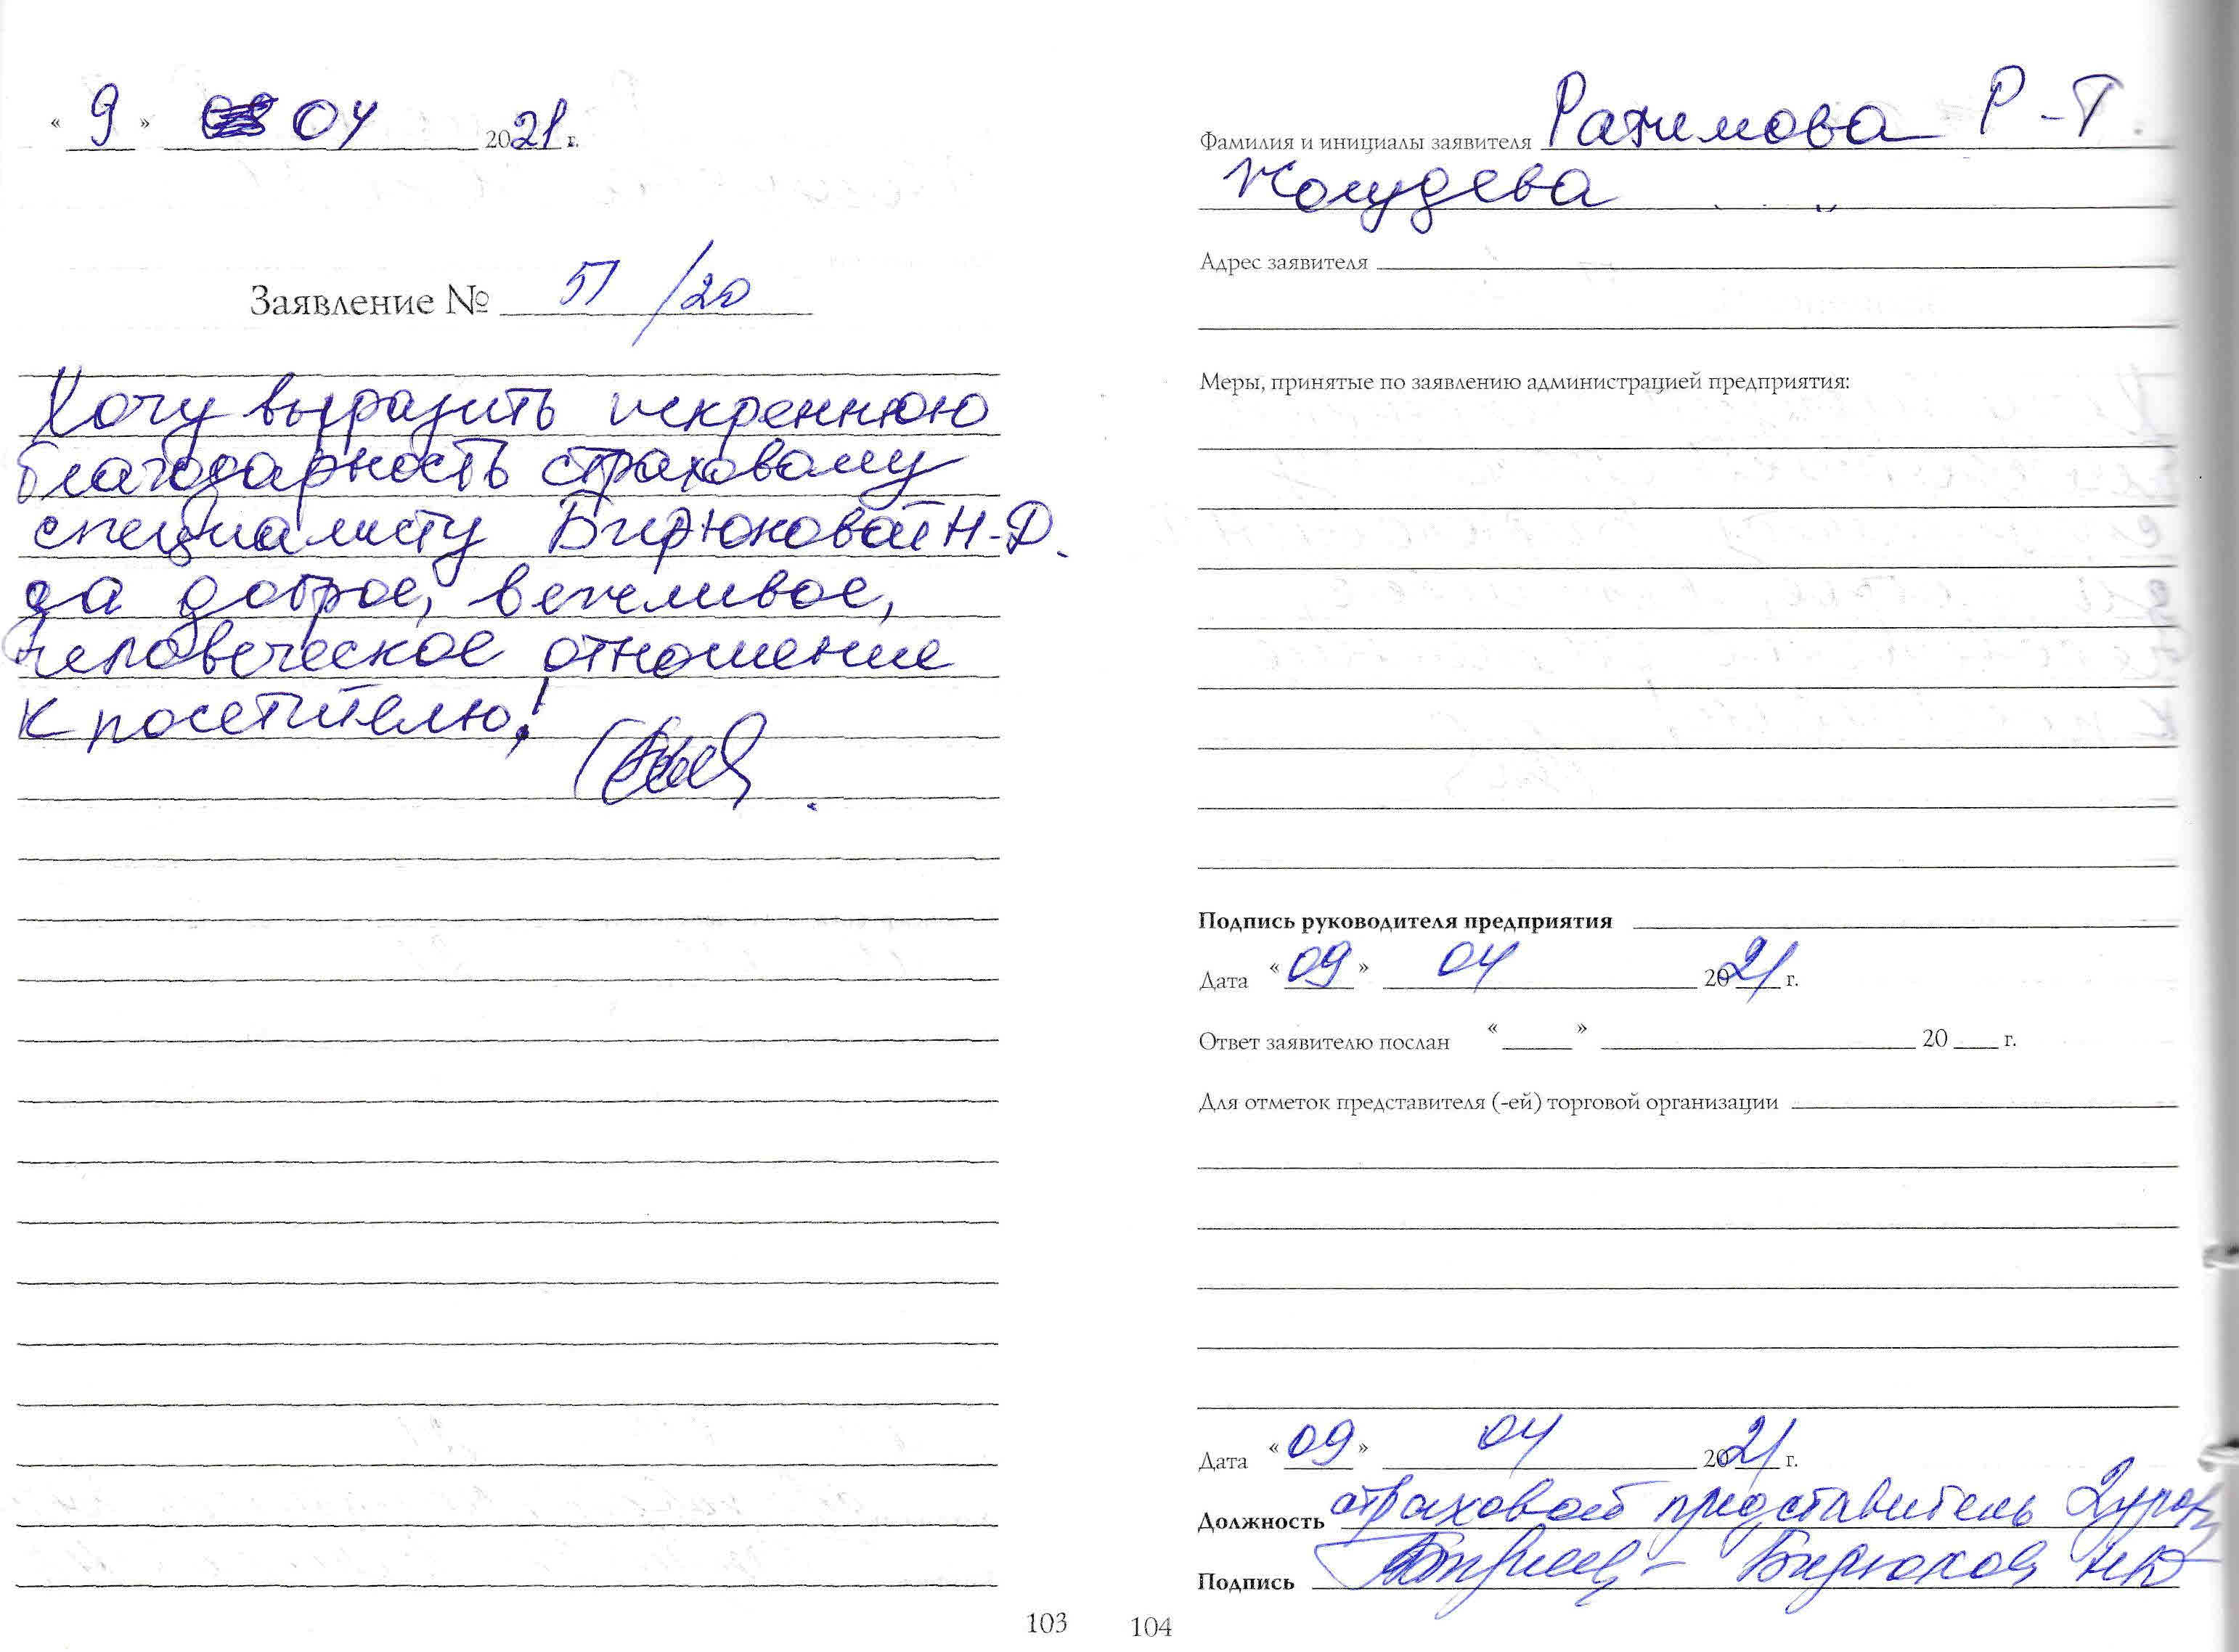 « 9 » 04 2021 г.
Заявление № 51/20
Хочу выразить искреннюю
благодарность страховому
специалисту Бирюковой Н.Д.
за доброе, вежливое,
человеческое отношение
к посетителю!
103
Фамилия и инициалы заявителя Рагимова Р-Т
Адрес заявителя
Меры, принятые по заявлению администрацией предприятия:
Подпись руководителя предприятия
Дата « 09 » 04 2021 г.
Ответ заявителю послан « » 20 г.
Для отметок представителя (-ей) торговой организации
Дата « 09 » 04 2021 г.
Должность страховой представитель 2 уровня
Подпись Бирюкова НД
104